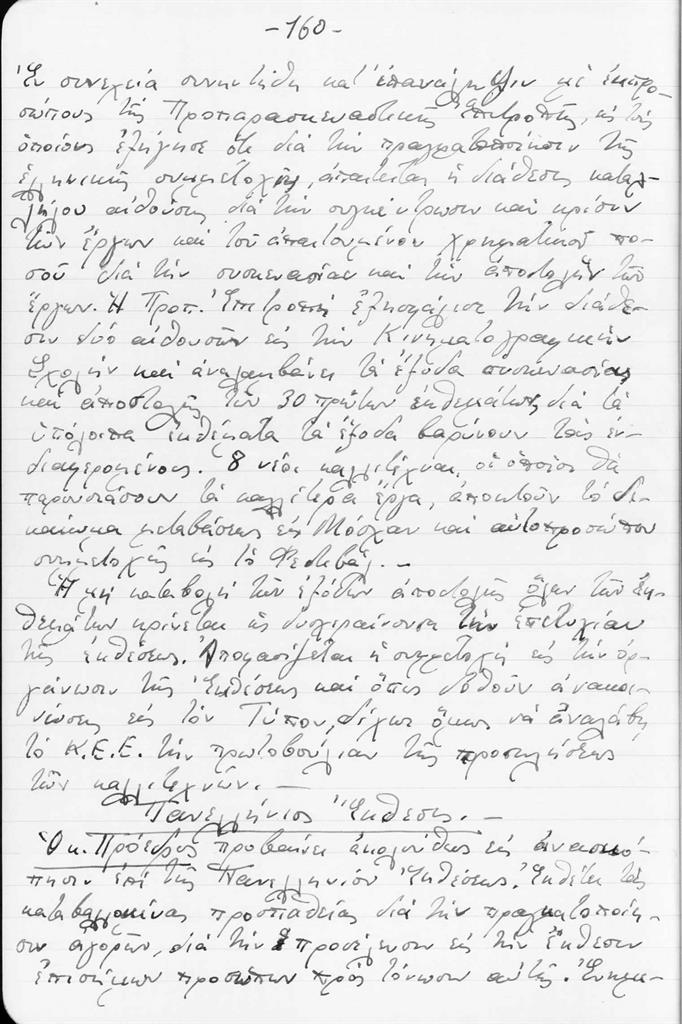 -160-
Ἐν συνεχείᾳ συνηντήθη κατ' ἐπανάληψιν μὲ ἐκπρο-
σώπους τῆς Προπαρασκευαστικῆς Ἐπιτροπῆς, εἰς τοὺς
ὁποίους ἐξήγησε ὅτι διὰ τὴν πραγματοποίησιν τῆς
ἑλληνικῆς συμμετοχῆς, ἀπαιτεῖται ἡ διάθεσις καταλ-
λήλου αἰθούσης διὰ τὴν συγκέντρωσιν καὶ κρίσιν
τῶν ἔργων καὶ τοῦ ἀπαιτουμένου χρηματικοῦ πο-
σοῦ διὰ τὴν συσκευασίαν καὶ τὴν ἀποστολὴν τῶν
ἔργων. Ἡ Προπ. Ἐπιτροπὴ ἐξησφάλισε τὴν διάθε-
σιν δύο αἰθουσῶν εἰς τὴν Κινηματογραφικὴν
Σχολὴν καὶ ἀναλαμβάνει τὰ ἔξοδα συσκευασίας
καὶ ἀποστολῆς τῶν 30 πρώτων ἐκθεμάτων, διὰ τὰ
ὑπόλοιπα ἐκθέματα τὰ ἔξοδα βαρύνουν τοὺς ἐν-
διαφερομένους. 8 νέοι καλλιτέχναι, οἱ ὁποῖοι θὰ
παρουσιάσουν τὰ καλλίτερα ἔργα, ἀποκτοῦν τὸ δι-
καίωμα μεταβάσεως εἰς Μόσχαν καὶ αὐτοπροσώπου
συμμετοχῆς εἰς τὸ Φεστιβάλ. -
Ἡ μὴ καταβολὴ τῶν ἐξόδων ἀποστολῆς ὅλων τῶν ἐκ-
θεμάτων κρίνεται ὡς δυσχεραίνουσα τὴν ἐπιτυχίαν
τῆς ἐκθέσεως. Ἀποφασίζεται ἡ συμμετοχὴ εἰς τὴν ὀρ-
γάνωσιν τῆς Ἐκθέσεως καὶ ὅπως δοθοῦν ἀνακοι-
νώσεις εἰς τὸν Τύπον, δίχως ὅμως νὰ ἀναλάβῃ
τὸ Κ.Ε.Ε. τὴν πρωτοβουλίαν τῆς προσκλήσεως
τῶν καλλιτεχνῶν. -
Πανελλήνιος Ἔκθεσις. -
Ὁ κ. Πρόεδρος προβαίνει ἀκολούθως εἰς ἀνασκό-
πησιν ἐπὶ τῆς Πανελληνίου Ἐκθέσεως. Ἐκθέτει τὰς
καταβαλλομένας προσπαθείας διὰ τὴν πραγματοποίη-
σιν ἀγορῶν, διὰ τὴν προσέλευσιν εἰς τὴν Ἔκθεσιν
ἐπισήμων προσώπων πρὸς τόνωσιν αὐτῆς. Ἐνημε-